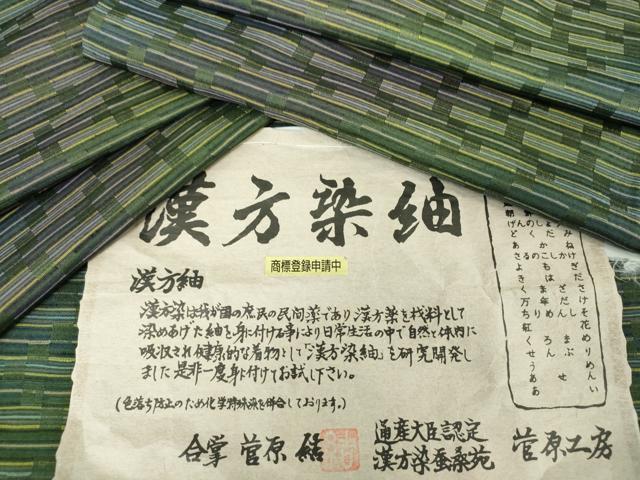 漢方染紬
商標登録申請中
漢方紬
漢方染は我が国の庶民の民間薬であり漢方薬を材料として
染めあげた紬を身に付ける事により日常生活の中で自然と体内に
吸収され健康的な着物として「漢方染紬」を研究開発し
ました是非一度身に付けてお試し下さい。
(色落ち防止のため化学特殊液を併合しております。)
合掌 菅原 結
通産大臣認定
漢方染蚕桑苑
菅原工房